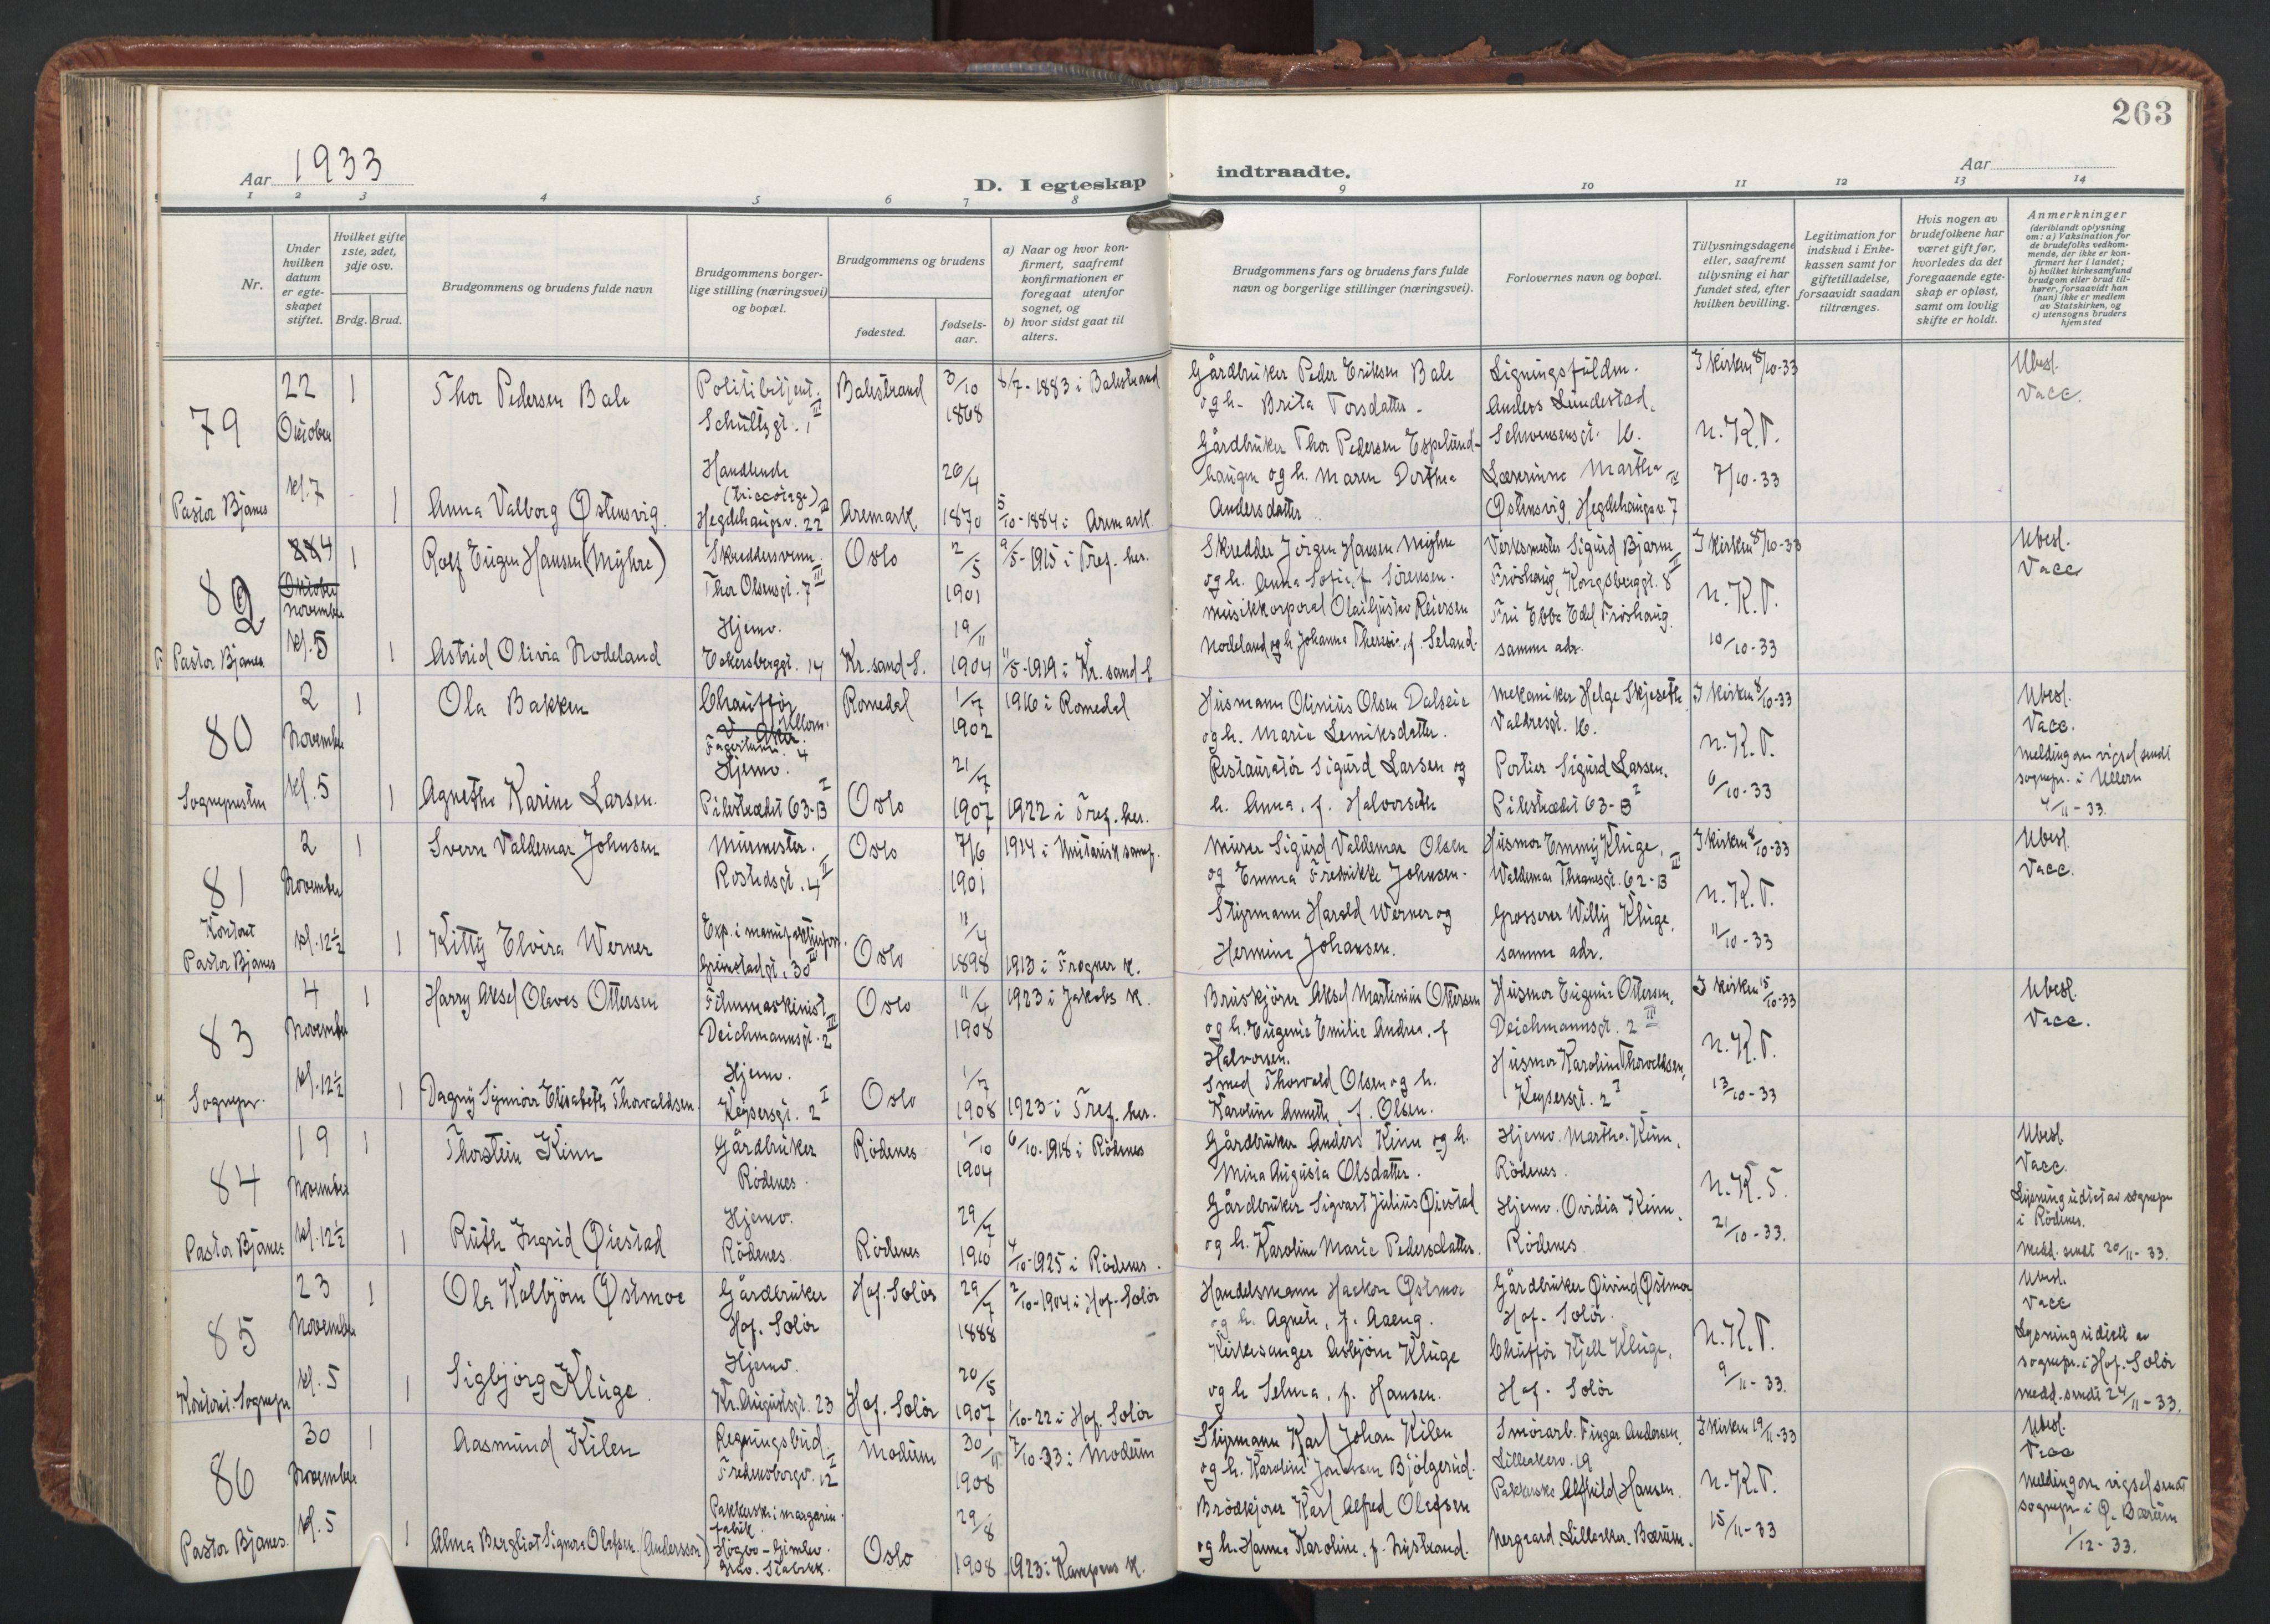 263
Aar 1933
D. I egteskap indtraadte.
Aar
1 2 3 4 5 6 7 8 9 10 11 12 13 14
Nr.
Under hvilken datum er egte-skapet stiftet.
Hvilket gifte 1ste, 2det, 3dje osv.
Brdg. Brud.
Brudgommens og brudens fulde navn
Brudgommens borger-lige stilling (næringsvei) og bopæl.
Brudgommens og brudens
fødested.
fødsels-aar.
a) Naar og hvor kon-firmert, saafremt konfirmationen er foregaat utenfor sognet, og
b) hvor sidst gaat til alters.
Brudgommens fars og brudens fars fulde navn og borgerlige stillinger (næringsvei).
Forlovernes navn og bopæl.
Tillysningsdagene eller, saafremt tillysning ei har fundet sted, efter hvilken bevilling.
Legitimation for indskud i Enke-kassen samt for giftetilladelse, forsaavidt saadan tiltrænges.
Hvis nogen av brudefolkene har været gift før, hvorledes da det foregaaende egte-skap er opløst, samt om lovlig skifte er holdt.
Anmerkninger
(deriblandt oplysning om: a) Vaksination for de brudefolks vedkom-mende, der ikke er kon-firmert her i landet; b) hvilket kirkesamfund brudgom eller brud til-hører, forsaavidt han (hun) ikke er medlem av Statskirken, og c) utensogns bruders hjemsted
79 22 Oktober kl. 7 Pastor Bjanes
1 Thor Pedersen Bale Politibetjent. Schultzgt. 1 III Balestrand 3/10 1868 8/7-1883 i Balestrand
Gårdbruker Peder Eriksen Bale og h. Brita Torsdatter. Ligningsfuldm. Anders Lundestad, Schwensensgt. 16. I kirken 8/10-33 Ubesl. Vacc.
1 Anna Valborg Østensvig. Handlende (triccotage) Hegdehaugsv. 22 III Aremark 26/4 1870 5/10-1884 i Aremark
Gårdbruker Thor Pedersen Espelund-haugen og h. Maren Dorthea Andersdatter. Lærerinne Martha Østensvig, Hegdehaugsv. 7 IV N.K.T. 7/10-33
82 4 November kl. 5 Pastor Bjanes
1 Rolf Eugen Hansen (Myhre) Skreddersvenn. Thor Olsensgt. 7 III Oslo 2/5 1901 9/5-1915 i Tref. her.
Skredder Jörgen Hansen Myhre og h. Anna Sofie, f. Sörensen. Verksmester Sigurd Bjarne Fröshaug, Kongsberggt. 8 II I kirken 8/10-33 Ubesl. Vacc
1 Astrid Olivia Nodeland Hjemv. Eckersberggt. 14 Kr.sand S. 19/11 1904 11/5-1919 i Kr.sand S
Musikkorporal Olai Gustav Reiersen Nodeland og h. Johanne Therese, f. Seland. Fru Ebba Edel Fröshaug. samme adr. N.K.T. 10/10-33
80 2 November kl. 5 Sognepresten
1 Ola Bakken Chauffør Ullern. Fagerlund. 4 Romedal 1/7 1902 1916 i Romedal
Husmann Olinius Olsen Dalseie og h. Marie Lemiksdatter. Mekaniker Helge Skjeseth Valdresgt. 16. I kirken 8/10-33 Ubesl. Vacc.
1 Agnethe Karine Larsen. Hjemv. Pilestrædet 63-B I Oslo 21/7 1907 1922 i Tref. her.
Restauratör Sigurd Larsen og h. Anna, f. Halvorseth Portier Sigurd Larsen. Pilestrædet 63-B I N.K.T. 6/10-33 Melding om vigsel sendt sognepr. i Ullern 4/11-33.
81 2 November kl. 12½ Kontoret Pastor Bjanes
1 Sverre Valdemar Johnsen Murmester. Rostedsgt. 4 II Oslo 7/6 1901 1914 i Unitarisk samf.
Murer Sigurd Valdemar Olsen og Emma Fredrikke Johnsen. Husmor Emmy Kluge, Waldemar Thranesgt. 62-B III I kirken 8/10-33 Ubesl. Vacc.
1 Kitty Elvira Werner Exp. i manufakturforr. Grimstadgt. 30 III Oslo 11/4 1898 1913 i Frogner K.
Styrmann Harald Werner og Hermine Johansen. Grosserer Willy Kluge, samme adr. N.K.T. 11/10-33
83 4 November kl. 12½ Sognepr.
1 Harry Aksel Olaves Ottersen Filmmaskinist Deichmannsgt. 2 III Oslo 11/4 1908 1923 i Jakobs K.
Bruskjörer Aksel Martinius Ottersen og h. Eugenie Emilie Andrea, f Halvorsen. Husmor Eugenie Ottersen, Deichmannsgt. 2 III I kirken 15/10-33 Ubesl. Vacc.
1 Dagny Synnöve Elisabeth Thorvaldsen. Hjemv. Keysersgt. 2 I Oslo 1/7 1908 1923 i Tref. her.
Smed Thorvald Olsen og h. Karoline Annette, f. Olsen. Husmor Karoline Thorvaldsen, Keysersgt. 2 I N.K.T. 13/10-33
84 19 November kl. 12½ Pastor Bjanes
1 Thorstein Kinn Gårdbruker Rödenes. Rödenes 1/10 1904 6/10-1918 i Rödenes
Gårdbruker Anders Kinn og h. Mina Augusta Olsdatter. Hjemv. Martha Kinn, Rödenes. Ubesl. Vacc.
1 Ruth Ingrid Øiestad Hjemv. Rödenes. Rödenes 29/7 1910 4/10-1925 i Rödenes.
Gårdbruker Sigvart Julius Øiestad og h. Karoline Marie Pedersdatter. Hjemv. Ovidia Kinn, Rödenes N.K.T. 21/10-33. Lysning utstet av sognepr i Rödenes. Medd. sendt 20/11-33.
85 23 November kl. 5 Kontoret. Sognepr
1 Ola Kolbjörn Østmoe Gårdbruker Hof. Solör Hof. Solör 29/7 1888 2/10-1904 i Hof-Solör
Handelsmann Haakon Østmoe og h. Agnete, f. Aaeng. Gårdbruker Øivind Østmoe Hof. Solör. Ubesl. Vacc
1 Sigbjörg Kluge. Hjemv. Kr. Augustsgt. 23 Hof. Solör 20/5 1907 1/10-22 i Hof. Solör
Kirkesanger Asbjörn Kluge og h Selma, f. Hansen. Chufför Kjell Kluge, Hof- Solör N.K.T. 9/11-33. Lysning utstett av sognepr. i Hof. Solör medd. sendt 24/11-33.
86 30 November kl. 5 Pastor Bjanes.
1 Aasmund Kilen Regningsbud. Fredensborgv. 12 I Modum 30/11 1908 7/10-23 i Modum
Styrmann Karl Johan Kilen og h. Karoline Bjölgerud. Smörarb. Finger Andersen, Lilleakerv. 19 I kirken 19/11-33 Ubesl. Vacc
1 Alma Bergliot Signora Olafsen (Andersson) Pakkerske i margarin-fabrik. Høgbo-Gimlev. Stabekk. Oslo 29/8 1908 1923 i Kampens K.
Brödkjörer Karl Alfred Olafsen og h. Hanna Karoline, f. Nystrand. Pakkerske Alfhild Hansen. Nergaard. Lilleaker. Bærum. N.K.T. 15/11-33 Melding om vigsel sendt sognepr i Ø. Bærum 1/12-33.